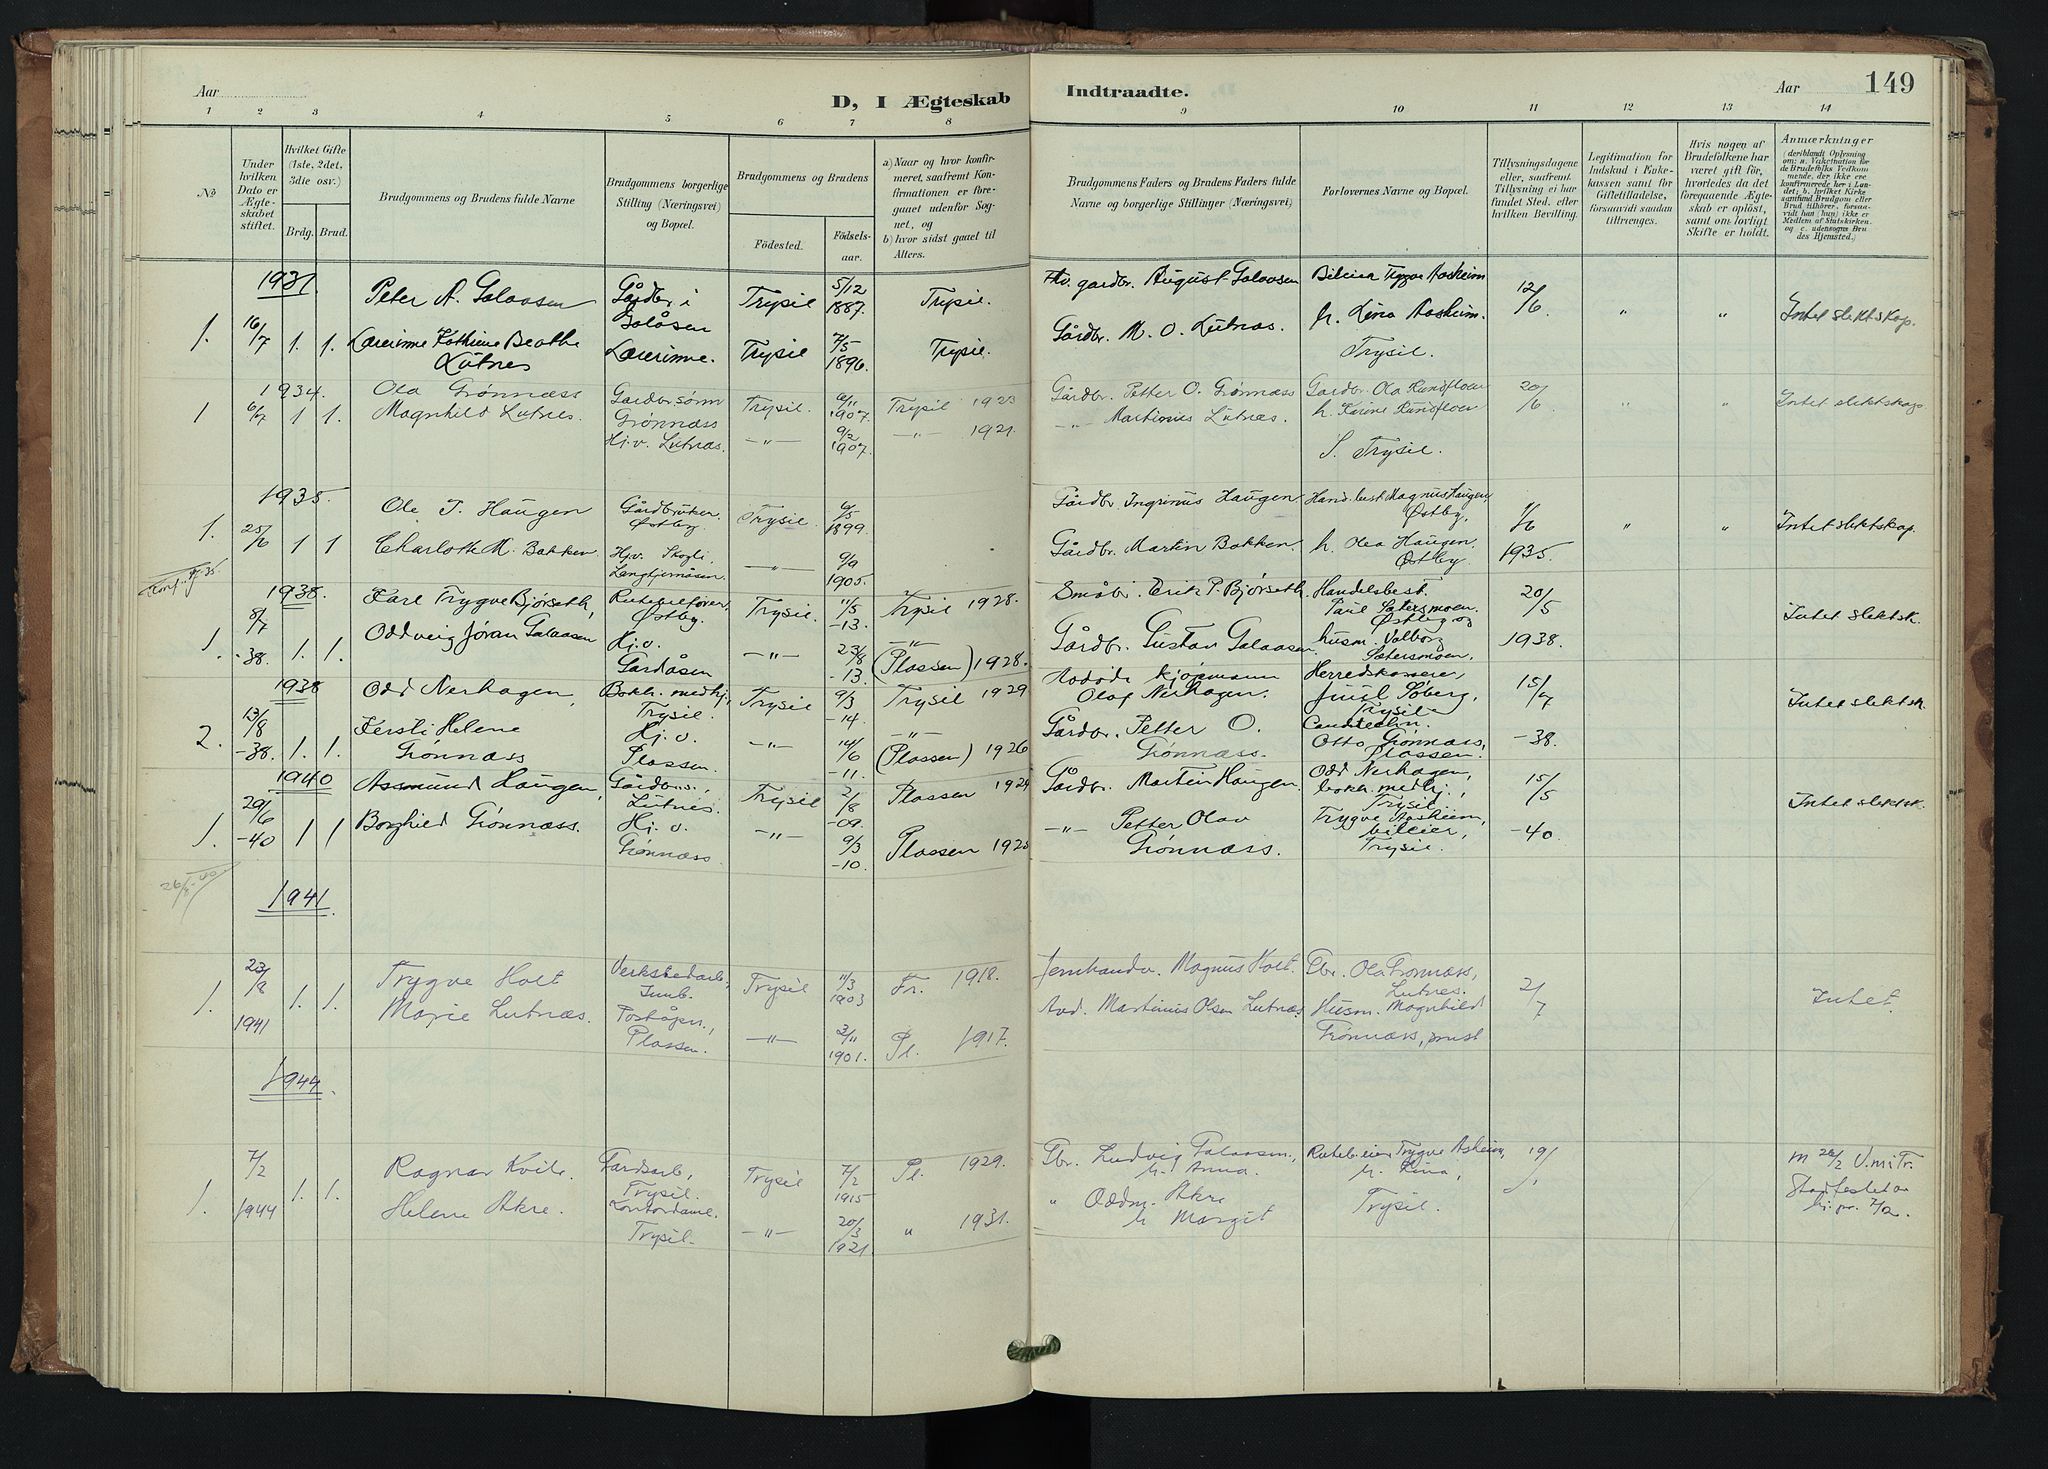 Aar
D, I Ægteskab
Indtraadte.
Aar
149
1 2 3 4 5 6 7 8 9 10 11 12 13 14
No
Under hvilken Dato er Ægteskabet stiftet.
Hvilket Gifte (1ste, 2det, 3die osv.)
Brdg. Brud.
Brudgommens og Brudens fulde Navne
Brudgommens borgerlige Stilling (Næringsvei) og Bopæl.
Brudgommens og Brudens
Födested.
Födselsaar.
a) Naar og hvor konfirmeret, saafremt Konfirmationen er foregaaet udenfor Sognet, og
b) hvor sidst gaaet til Alters.
Brudgommens Faders og Brudens Faders fulde Navne og borgerlige Stillinger (Næringsvei)
Forlovernes Navne og Bopæl.
Tillysningsdagene eller, saafremt Tillysning ei har fundet Sted, efter hvilken Bevilling.
Legitimation for Indskud i Enkekassen samt for Giftetilladelse, forsaavidt saadan tiltrænges.
Hvis nogen af Brudefolkene har været gift för, hvorledes da det foregaaende Ægteskab er oplöst, samt om lovligt Skifte er holdt.
Anmærkninger
(deriblandt Oplysning om: a. Vakcination for de Brudefolks Vedkommende, der ikke ere konfirmerede her i Landet; b. hvilket Kirkesamfund Brudgom eller Brud tilhörer, forsaavidt han (hun) ikke er Medlem af Statskirken, og c. udensogns Brudes Hjemsted.)
1931.
1. 16/7 1. 1. Peter A. Galaasen Gårdbr. i Galåsen Trysil 5/12 1887. Trysil. Fhv. gardbr. August Galaasen Bileier Trygve Aasheim 12/6 " " Intet slektskap.
Lærerinne Kathrine Beathe Lutnes Lærerinne. Trysil 7/5 1896. Trysil. Gårdbr. M. O. Lutnæs. h. Lina Aasheim. Trysil.
1934.
1 6/7 1 1. Ola Grønnæss Gardbr.sønn Grønnæss Trysil. 6/11 1907. Trysil 1923 Gårdbr. Petter O. Grønnæss Gardbr. Ola Rundfloen 20/6 " " Intet slektskap.
Magnhild Lutnes. Hj.v. Lutnæs. -"- 9/2 1907. -"- 1921. -"- Martinius Lutnæs. h. Karine Rundfloen S. Trysil.
1935.
1. 25/6 1 1 Ole T. Haugen Gårdbruker Østby. Trysil. 6/5 1899. Gårdbr. Ingrinus Haugen Hand.best. Magnus Haugen, Østby, 1/6 1935. " " Intet slektskap.
Charlotte M. Bakken Hj.v. Skogli, -"- 9/9 1905. Gårdbr. Martin Bakken. h. Olea Haugen, Østby.
1938.
1. 8/7 -38. 1. 1. Karl Trygve Bjørseth, Rutebilfører, Østby. Trysil. 11/5 -13. Trysil 1928. Småbr. Erik P. Bjørseth. Handelsbest. Paul Sætersmoen, Østby og 20/5 1938. Intet slektsk.
Oddveig Jøran Galaasen Hj.v. Gardåsen -"- 23/8 -13. -"- (Plassen) 1928. Gårdbr. Gustav Galaasen. husm. Valborg Sætersmoen.
1938
2. 13/8 -38. 1. 1. Odd Nerhagen, Bokh. medhj., Trysil. Trysil 9/3 -14. Trysil 1929 Avdøde kjøpmann Olaf Nerhagen. Herredskasserer, Juul Søberg, Trysil. 15/7 -38. Intet slektsk.
Kersti Helene Grønnæss Hj.v. Plassen. -"- 14/6 -11. -"- (Plassen) 1926 Gårdbr. Petter O. Grønnæss. Otto Grønnæss, Plassen.
1940
1. 29/6 -40 1 1 Assmund Haugen, Lutnes. Trysil 2/8 -09. Plassen Gårdbr. Martin Haugen. Odd Nerhagen, bokh. medhj., Trysil 15/5 -40. Intet slektsk.
Borghild Grønnæss. Hj.v. Grønnæss. -"- 9/3 -10. Plassen -"- Petter Olav Grønnæss. Trygve Aasheim, bileier, Trysil.
1941.
1. 23/8 1941 1. 1. Trygve Holt Trysil 11/3 1903 Tr. 1918. Magnus Holt. Gbr. Ola Grønnæss, Lutnes. 2/7 Intet.
Marie Lutnæs. Plassen. -"- 2/11 1901. Pl. 1917. Martinius Olsen Lutnæs Husm. Magnhild Grønnæss,
1944.
1. 7/2 1944 1. 1. Ragnar Kvile Gardsarb., Trysil. Trysil 7/2 1915 Pl. 1929. Gbr. Ludvig Galaasen, h. Anna. Trygve Asheim, h. Lina, Trysil. 19/1
Helene Akre. Kontordame. Trysil. -"- 20/3 1921. " 1931. " Oddm. Akre h. Margit